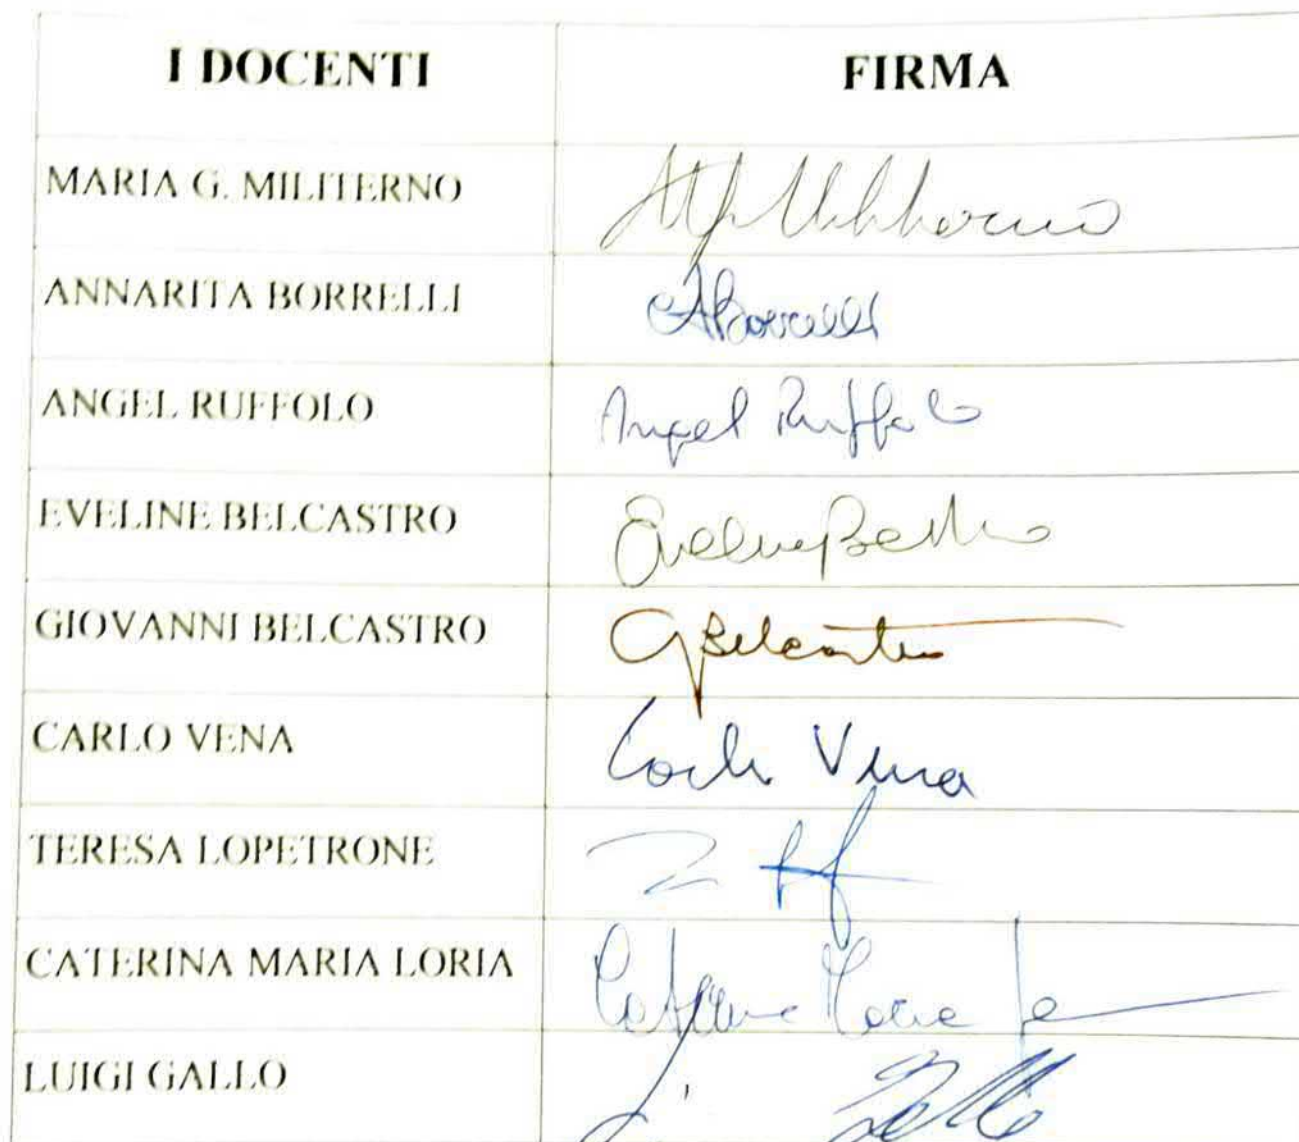 I DOCENTI FIRMA
MARIA G. MILITERNO
ANNARITA BORRELLI ABorrelli
ANGEL RUFFOLO Angel Ruffolo
EVELINE BELCASTRO
GIOVANNI BELCASTRO GBelcastro
CARLO VENA Carlo Vena
TERESA LOPETRONE
CATERINA MARIA LORIA Caterina Maria
LUIGI GALLO